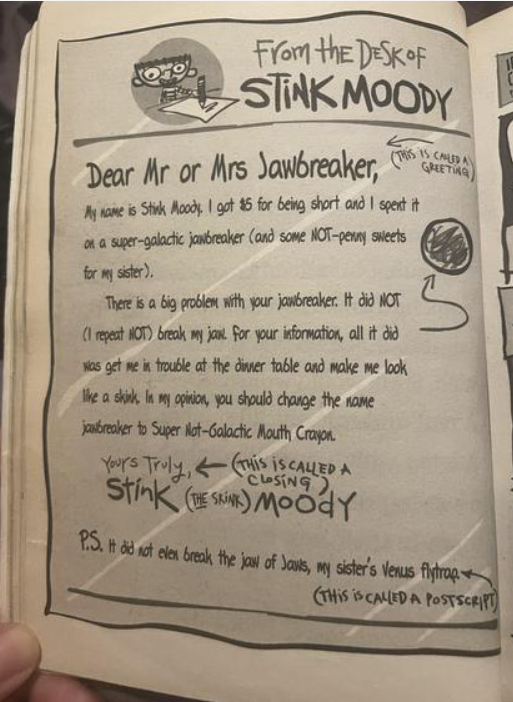 From the Desk of
STINK MOODY
Dear Mr or Mrs Jawbreaker,
(THIS IS CALLED A
GREETING)
My name is Stink Moody. I got $5 for being short and I spent it
on a super-galactic jawbreaker (and some NOT-penny sweets
for my sister).
There is a big problem with your jawbreaker. It did NOT
(I repeat NOT) break my jaw. For your information, all it did
was get me in trouble at the dinner table and make me look
like a skink. In my opinion, you should change the name
jawbreaker to Super Not-Galactic Mouth Crayon.
Yours Truly, (THIS IS CALLED A
CLOSING)
Stink (THE SKINK) MOODY
P.S. It did not even break the jaw of Jaws, my sister's Venus flytrap.
(THIS IS CALLED A POSTSCRIPT)